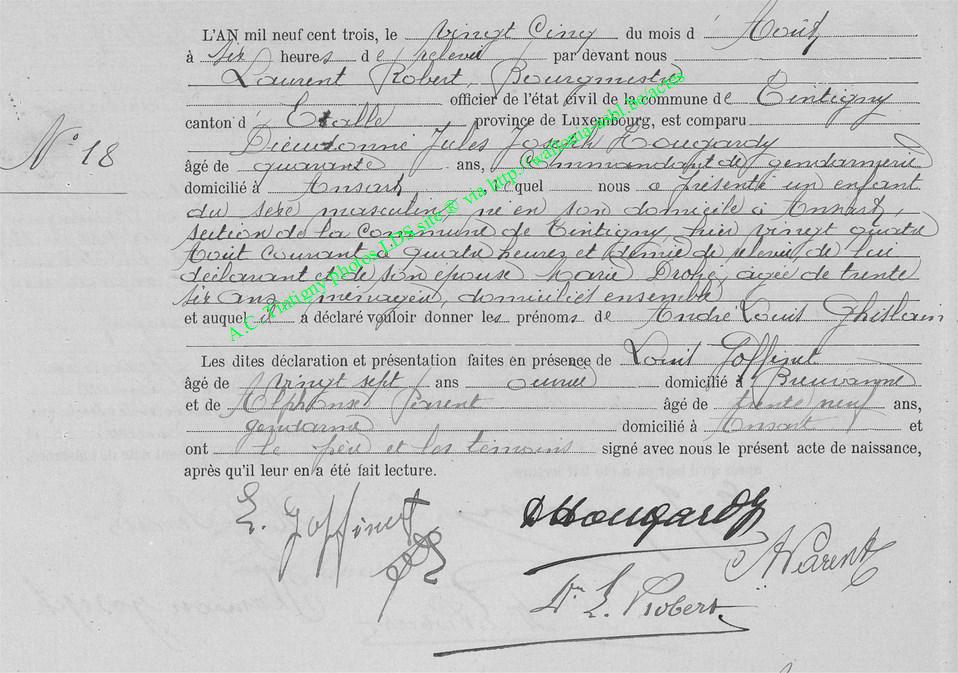 L'AN mil neuf cent trois, le vingt Cinq du mois d' Août
à six heures de relevée par devant nous
Laurent Robert, Bourgmestre
officier de l'état civil de la commune de Tintigny
canton d' Etalle province de Luxembourg, est comparu
N° 18
Dieudonné Jules Joseph Hougardy
âgé de quarante ans, Commandant de gendarmerie
domicilié à Ansart, lequel nous a présenté un enfant
du sexe masculin, né en son domicile à Ansart,
section de la Commune de Tintigny, hier vingt quatre
Août courant à quatre heures et demie de relevée, de lui
déclarant et de son épouse Marie Drohé, agée de trente
six ans, ménagère, domiciliés ensemble
et auquel il a déclaré vouloir donner les prénoms de André Louis Ghislain
Les dites déclaration et présentation faites en présence de Louis Goffinet
âgé de vingt sept ans ouvrier domicilié à Breuvanne
et de Alphonse Parent âgé de trente neuf ans,
gendarme domicilié à Ansart et
ont le père et les témoins signé avec nous le présent acte de naissance,
après qu'il leur en a été fait lecture.
L. Goffinet
DHougardy
AParent
Dr L. Robert
A.C. Tintigny photos LDS site ® via http://wallonia-asbl.be/actes